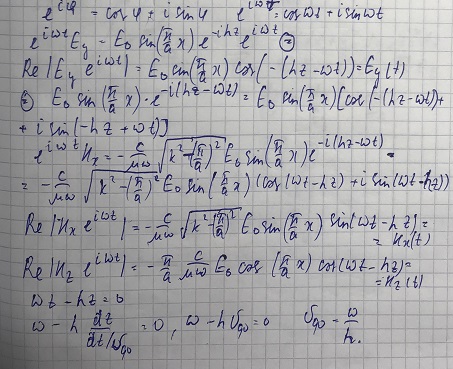 e^{iφ} = cos φ + i sin φ   e^{iωt} = cos ωt + i sin ωt
e^{iωt} E_y = E_0 sin(π/a x) e^{-ihz} e^{iωt} =
Re |E_y e^{iωt}| = E_0 sin(π/a x) cos(-(hz-ωt)) = E_y(t)
= E_0 sin(π/a x) · e^{-i(hz-ωt)} = E_0 sin(π/a x)[cos(-(hz-ωt)) +
+ i sin(-hz + ωt)]
e^{iωt} H_x = -c/μω √(k²-(π/a)²) E_0 sin(π/a x) e^{-i(hz-ωt)} =
= -c/μω √(k²-(π/a)²) E_0 sin(π/a x)(cos(ωt-hz) + i sin(ωt-hz))
Re |H_x e^{iωt}| = -c/μω √(k²-(π/a)²) E_0 sin(π/a x) sin(ωt-hz) =
= H_x(t)
Re |H_z e^{iωt}| = -π/a c/μω E_0 cos(π/a x) cos(ωt-hz) =
= H_z(t)
ωt - hz = 0
ω - h dz/dt = 0, ω - h υ_ф = 0   υ_ф = ω/h.